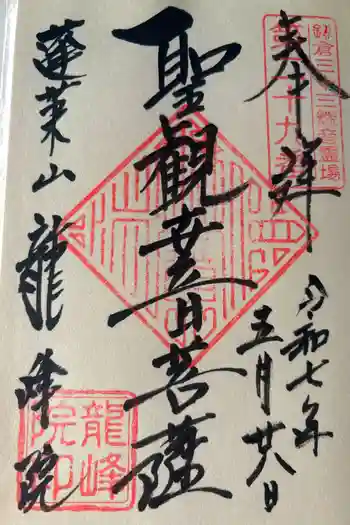 奉拝
鎌倉三十三観音霊場
第二十九番
令和七年
五月廿八日
聖観世音菩薩
蓬莱山 龍峰院
龍峰
院印